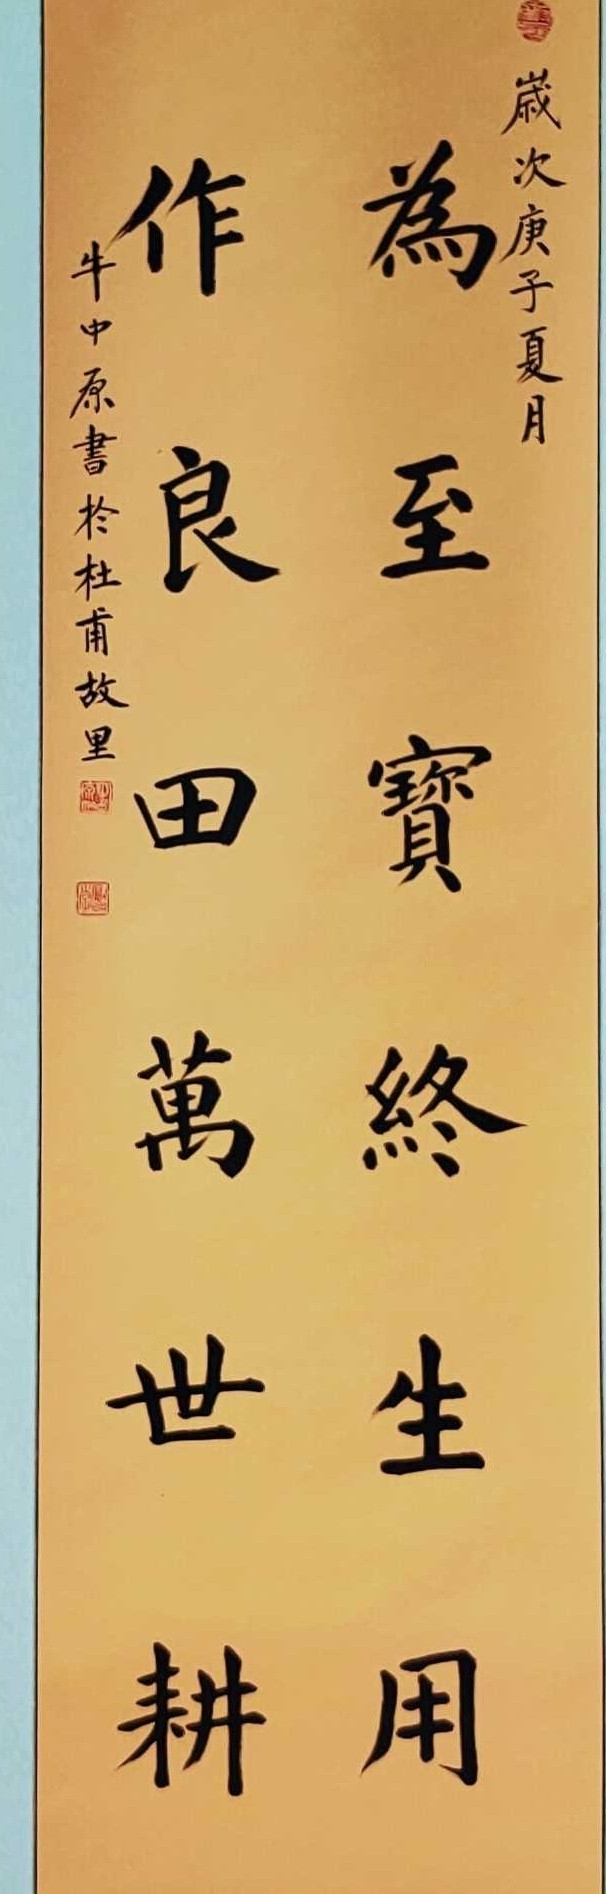 歲次庚子夏月
為至寶終生用
作良田萬世耕
牛中原書於杜甫故里